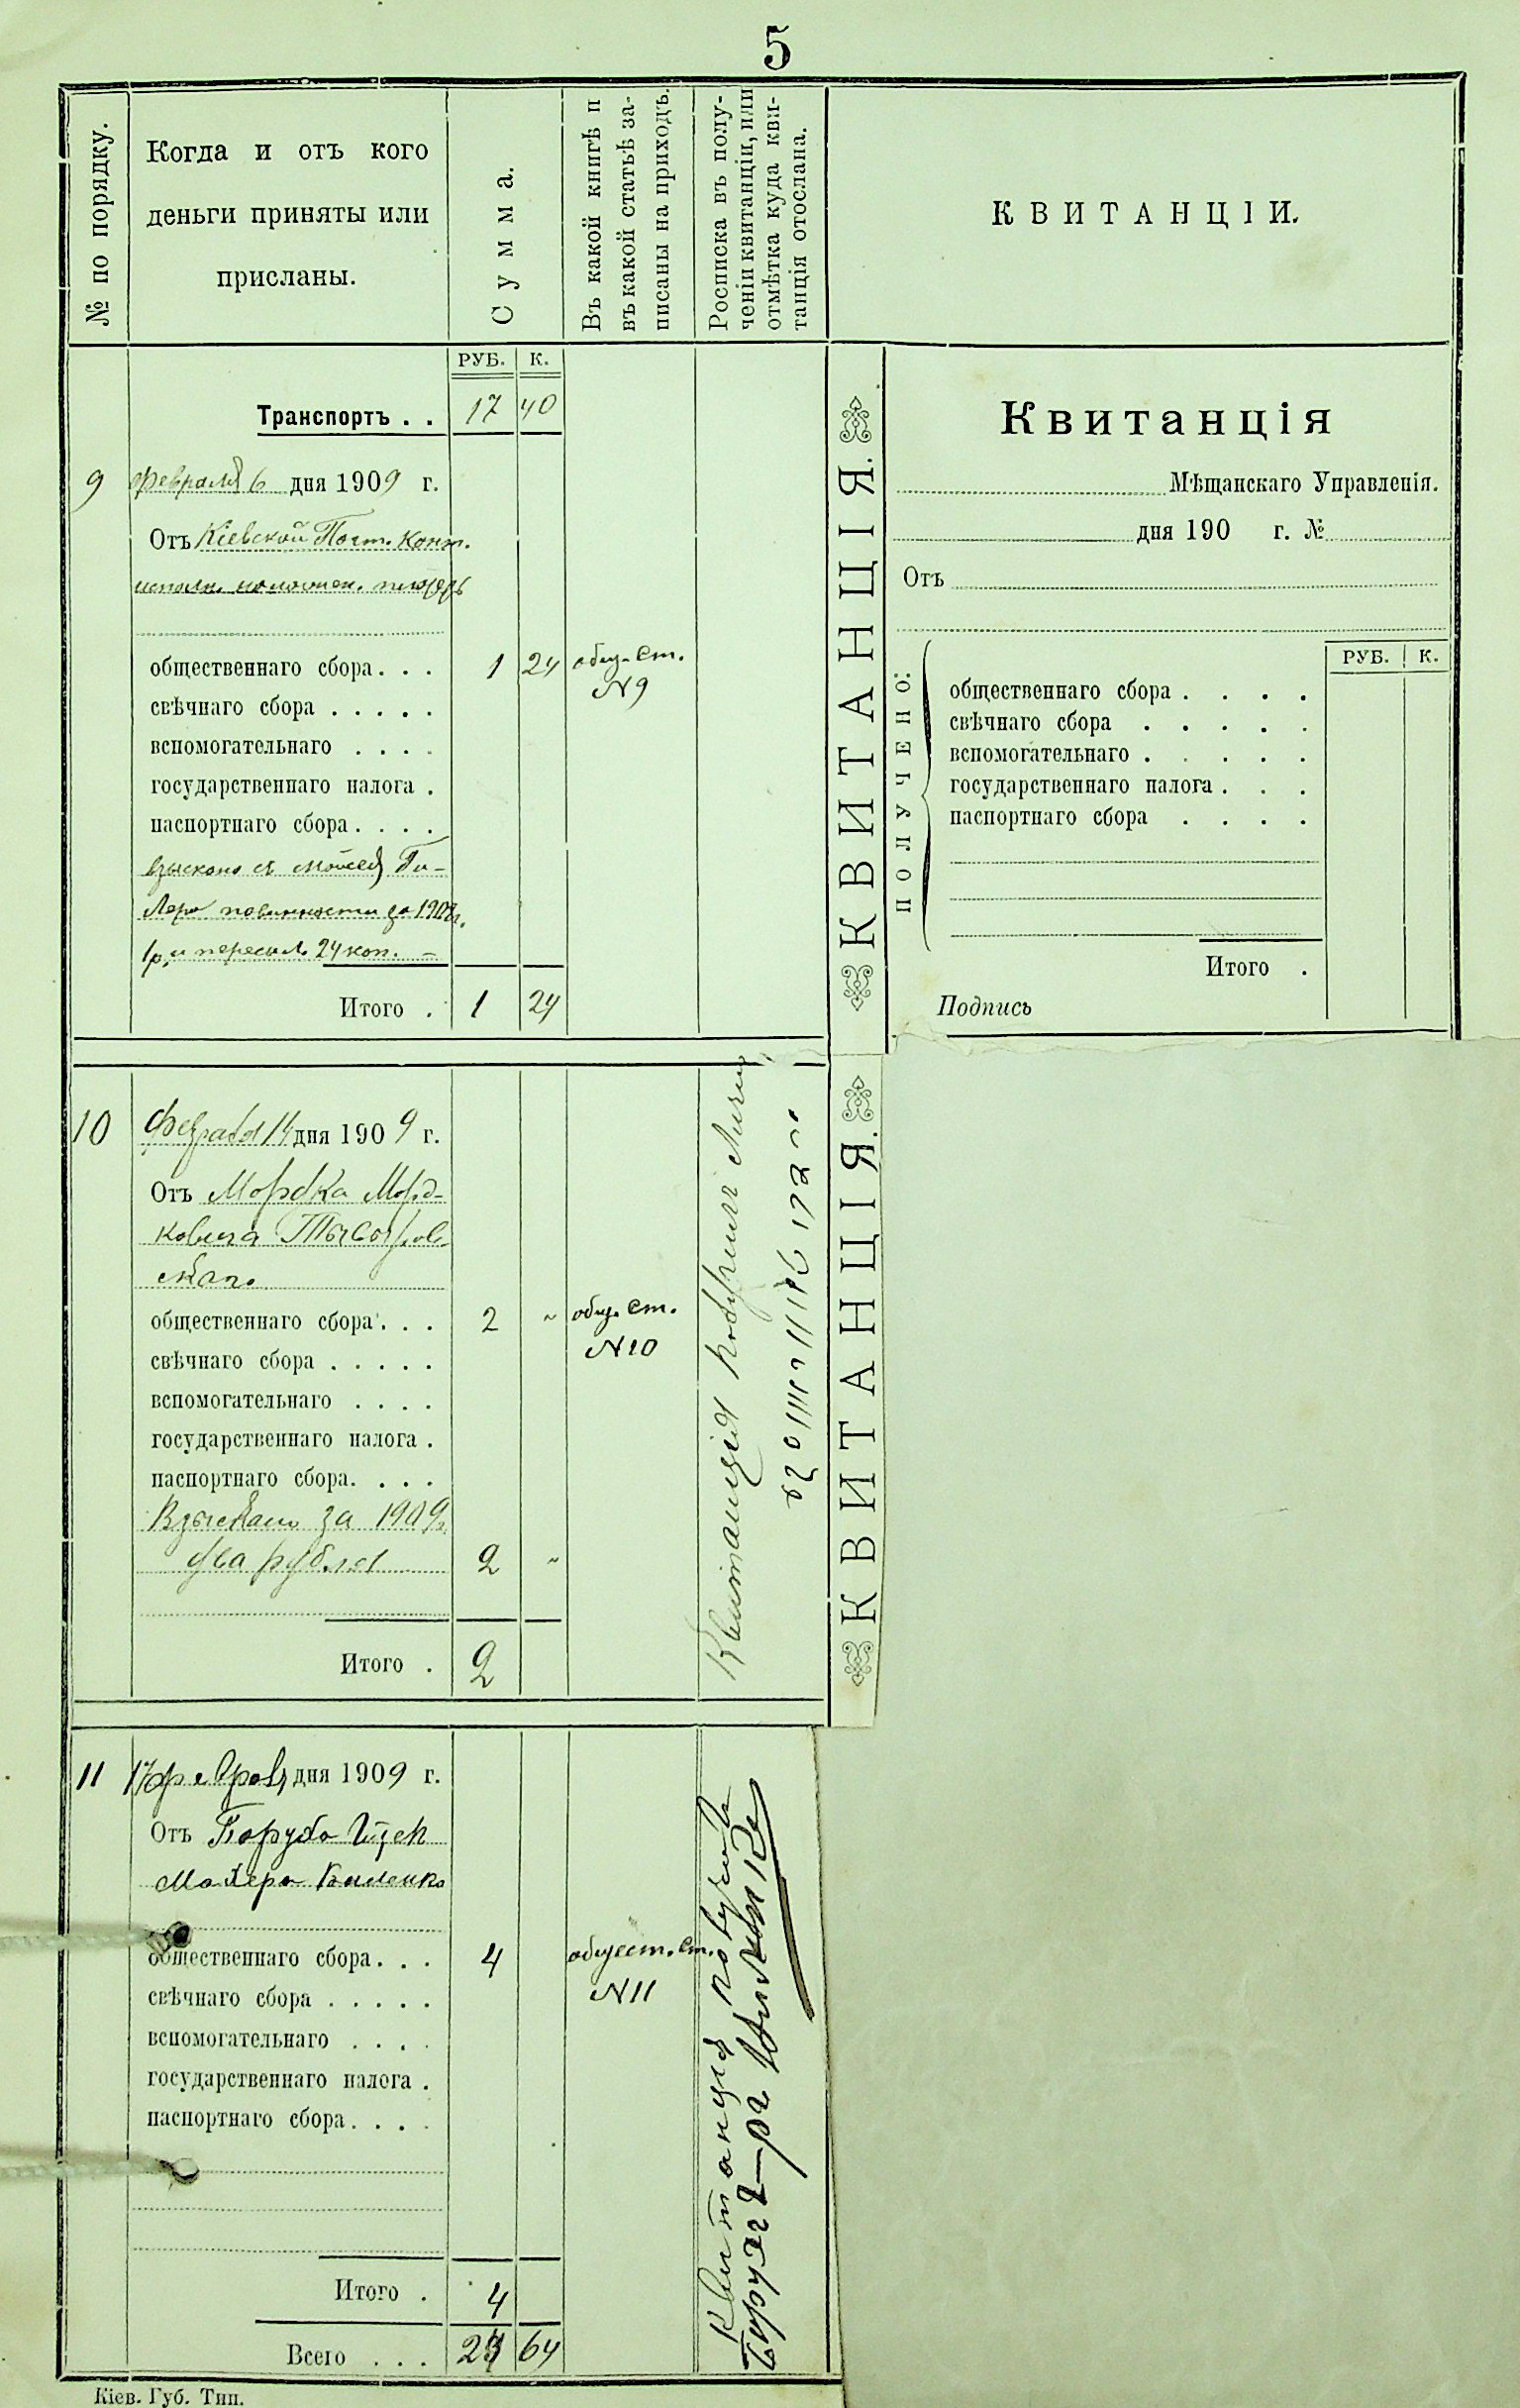 5
№ по порядку.
Когда и отъ кого
деньги приняты или
присланы.
Сумма.
Въ какой книгѣ и
въ какой статьѣ за-
писаны на приходъ.
Росписка въ полу-
ченіи квитанціи, или
отмѣтка куда кви-
танція отослана.
КВИТАНЦІИ.
РУБ. К.
Транспортъ . . 17 40
9
Февраля 6 дня 1909 г.
Отъ Кіевской Почт. Конт.
общественнаго сбора. . . 1 24 общ. ст.
N 9
свѣчнаго сбора . . . . .
вспомогательнаго . . . .
государственнаго налога .
паспортнаго сбора. . . .
взыскано съ Мойсея Ги-
лера повинности за 1908 г.
1 р. и пересыл. 24 коп. —
Итого . 1 24
КВИТАНЦІЯ.
Квитанція
Мѣщанскаго Управленія.
дня 190 г. №
Отъ
ПОЛУЧЕНО:
РУБ. К.
общественнаго сбора . . . .
свѣчнаго сбора . . . . .
вспомогательнаго . . . . .
государственнаго налога . . .
паспортнаго сбора . . . .
Итого .
Подпись
10
Февраля 14 дня 1909 г.
Отъ МордкаМорд-
ковича
общественнаго сбора. . . 2 " общ. ст.
N 10
свѣчнаго сбора . . . . .
вспомогательнаго . . . .
государственнаго налога .
паспортнаго сбора. . . .
Взыскано за 1909 г.
два рубля 2 "
Итого . 2
Квитанція получил
КВИТАНЦІЯ.
11
17 февраля дня 1909 г.
Отъ Боруха Ицек
Маера Биленка
общественнаго сбора. . . 4 общест. ст.
N 11
свѣчнаго сбора . . . . .
вспомогательнаго . . . .
государственнаго налога .
паспортнаго сбора. . . .
Итого . 4
Всего . . . 24 64
Квитанція получилъ
Кіев. Губ. Тип.